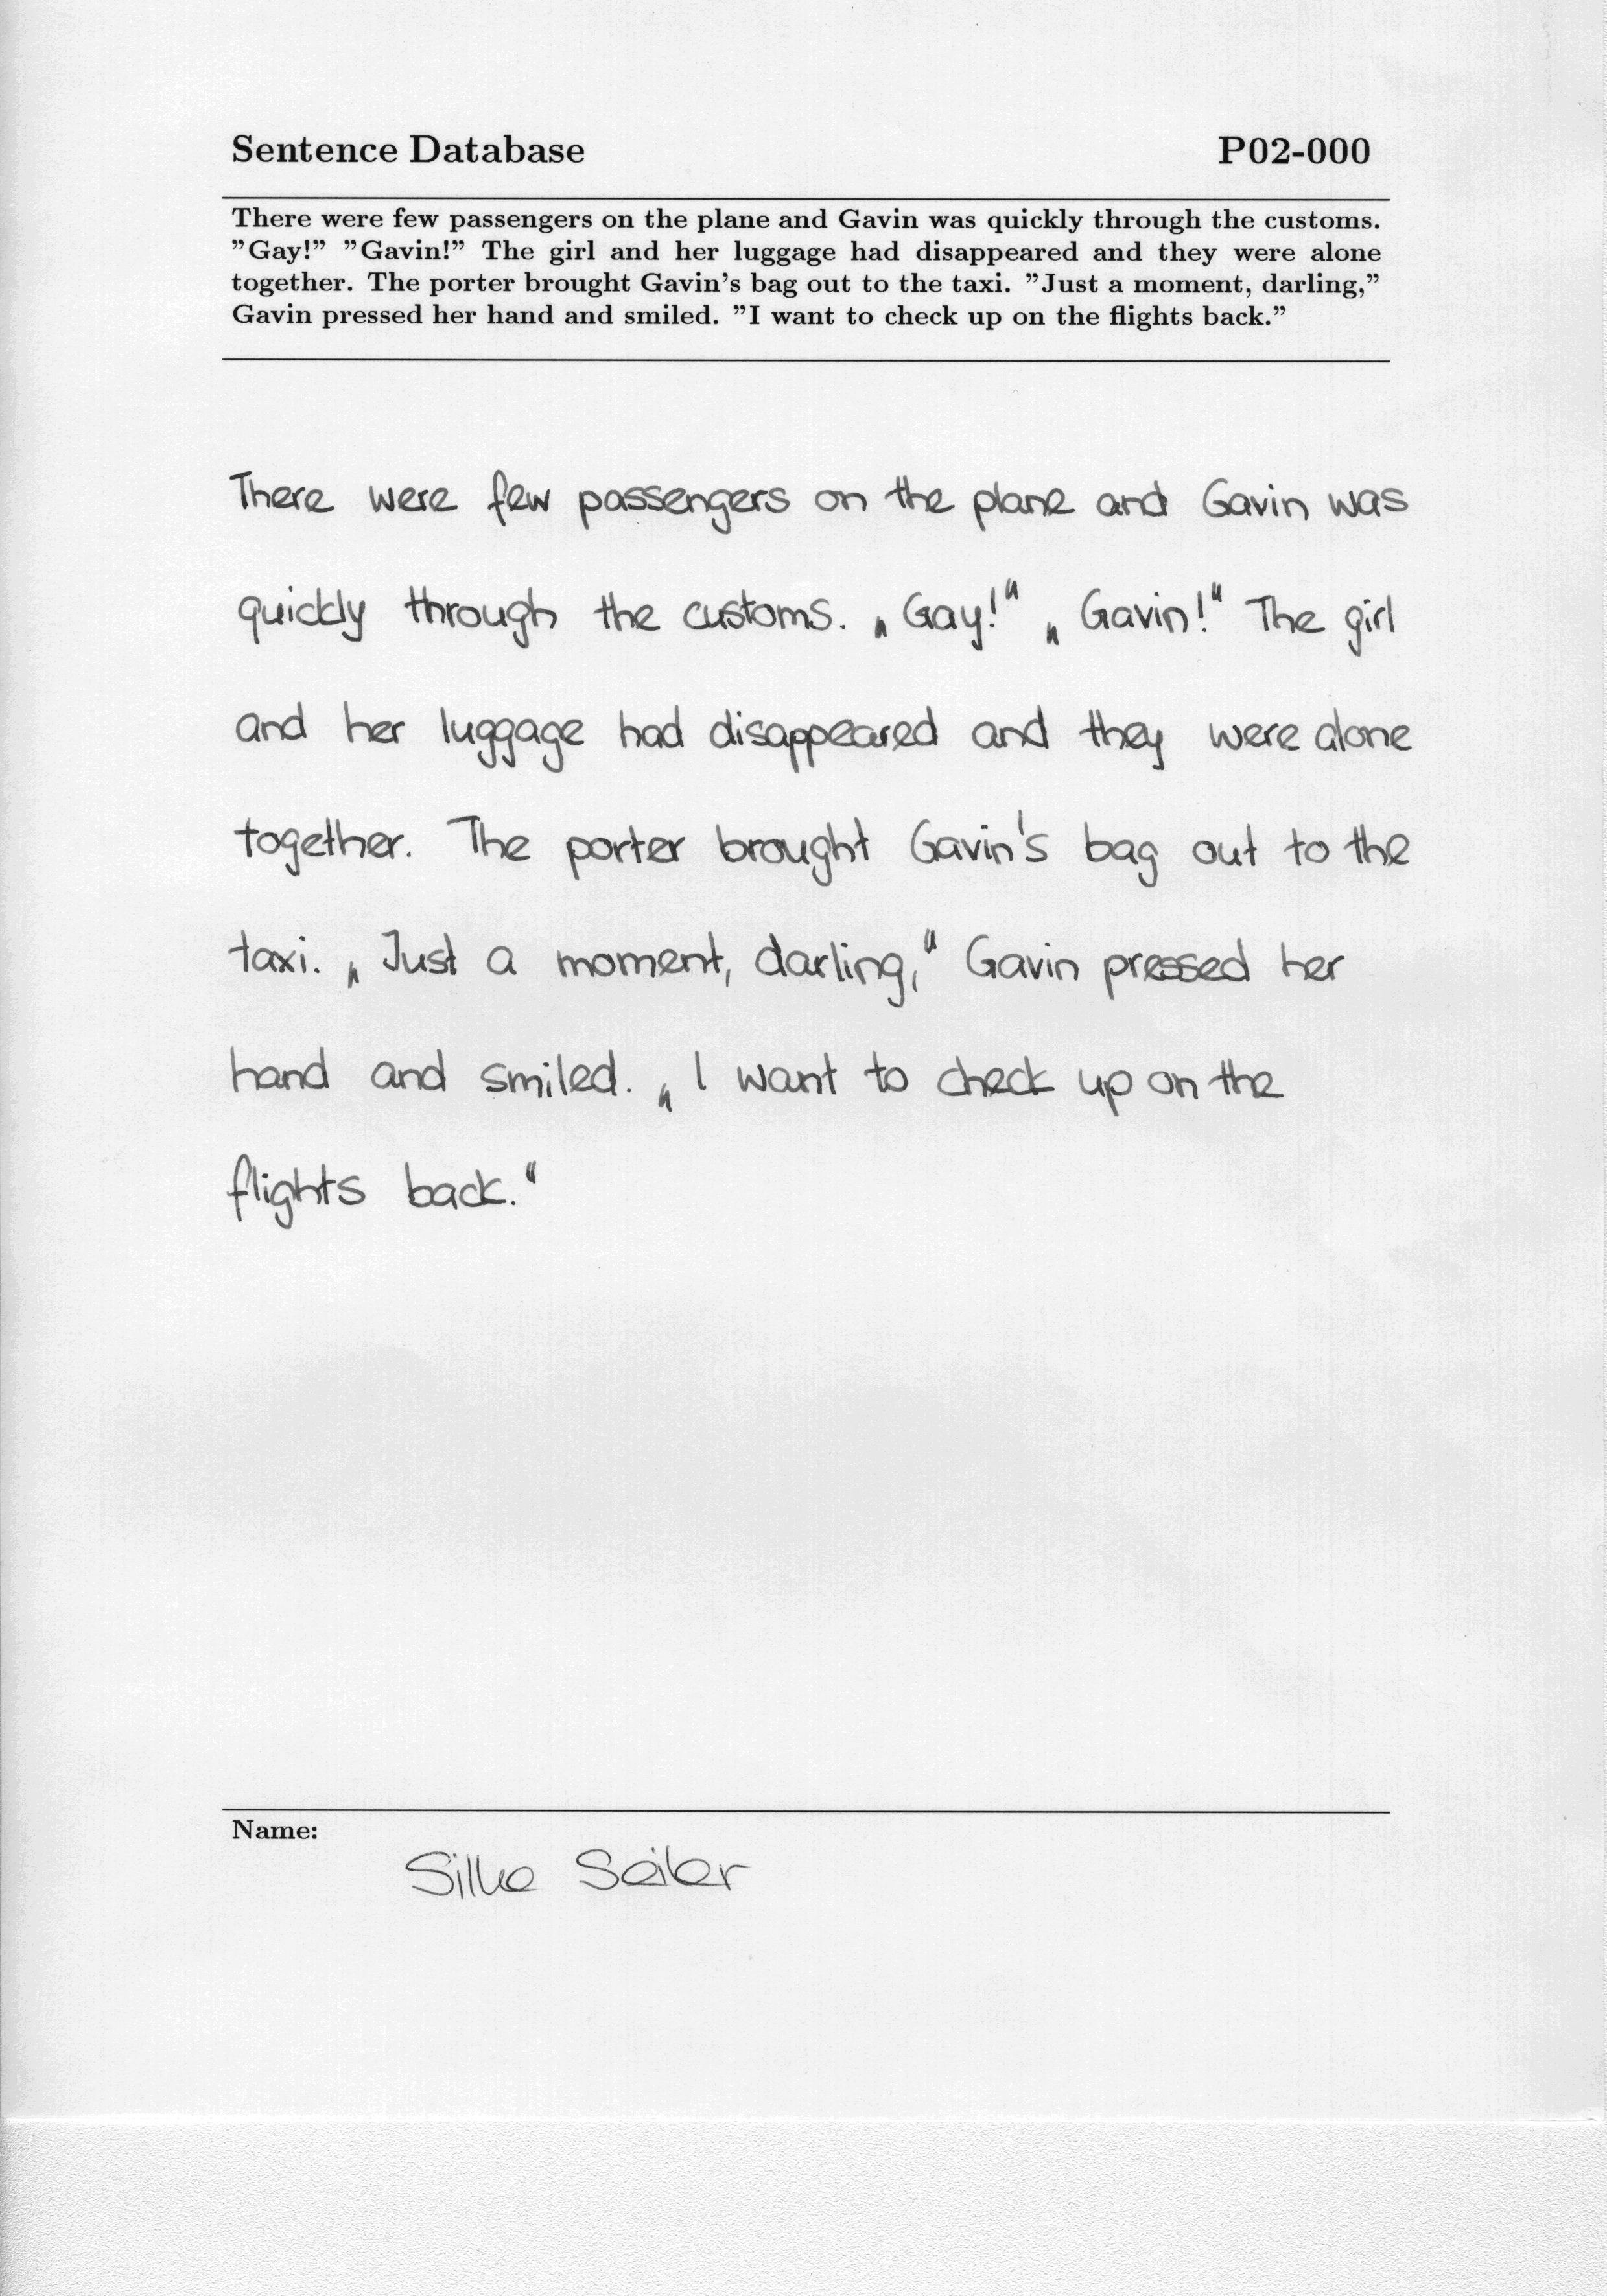 Sentence Database P02-000
There were few passengers on the plane and Gavin was quickly through the customs.
”Gay!” ”Gavin!” The girl and her luggage had disappeared and they were alone
together. The porter brought Gavin’s bag out to the taxi. ”Just a moment, darling,”
Gavin pressed her hand and smiled. ”I want to check up on the flights back.”
There were few passengers on the plane and Gavin was
quickly through the customs. „Gay!“ „Gavin!“ The girl
and her luggage had disappeared and they were alone
together. The porter brought Gavin's bag out to the
taxi. „Just a moment, darling,“ Gavin pressed her
hand and smiled. „I want to check up on the
flights back.“
Name:
Silke Seiler